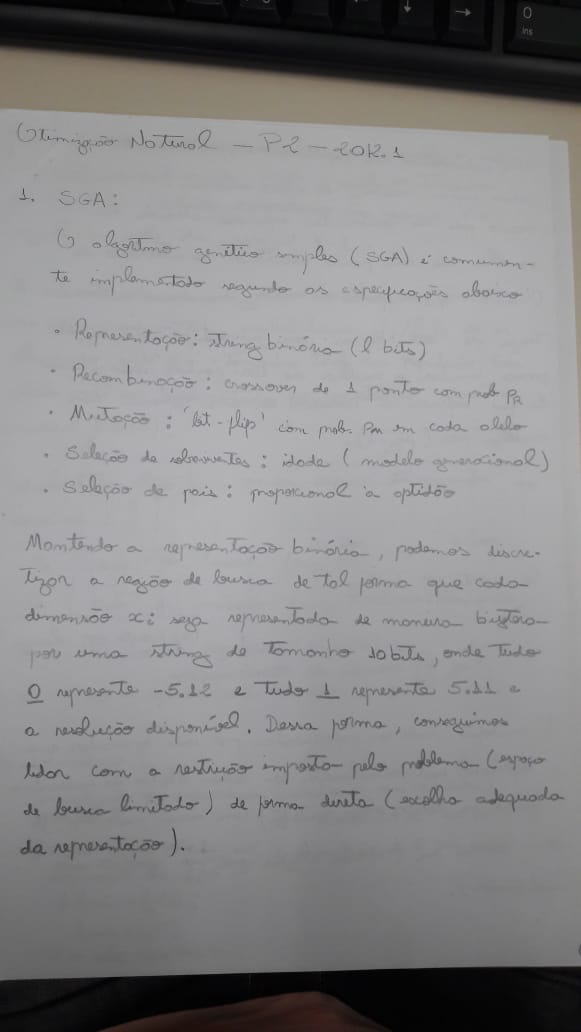 0
Ins
Otimização Natural - P2 - 2012.1
1. SGA:
O algoritmo genético simples (SGA) é comumen-
te implementado segundo as especificações abaixo
• Representação: string binária (l bits)
• Recombinação: crossover de 1 ponto com prob PR
• Mutação: 'bit-flip' com prob. Pm em cada alelo
• Seleção de sobreviventes: idade (modelo generacional)
• Seleção de pais: proporcional à aptidão
Mantendo a representação binária, podemos discre-
tizar a região de busca de tal forma que cada
dimensão xi seja representada de maneira
por uma string de tamanho 10 bits, onde tudo
0 represente -5.12 e tudo 1 represente 5.11 e
a resolução disponível. Dessa forma, conseguimos
lidar com a restrição imposta pelo problema (espaço
de busca limitado) de forma direta (escolha adequada
da representação).